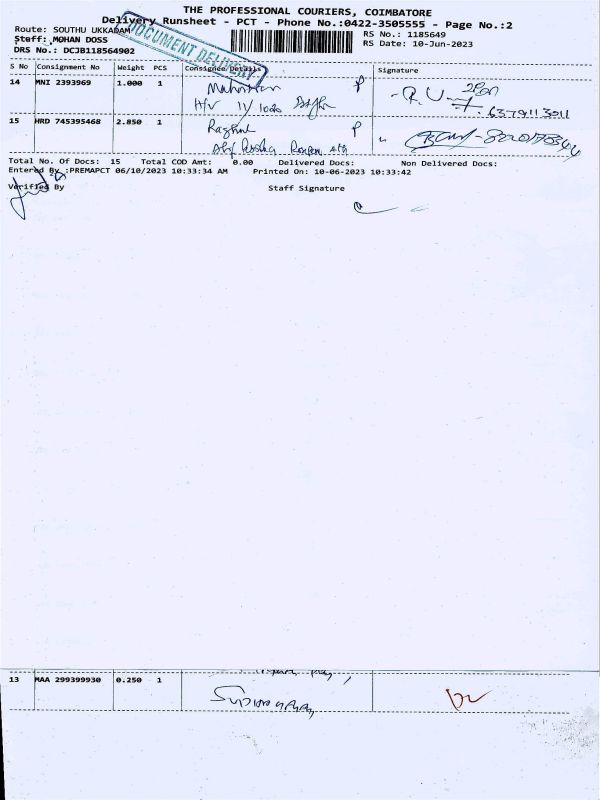 THE PROFESSIONAL COURIERS, COIMBATORE
Delivery Runsheet - PCT - Phone No.:0422-3505555 - Page No.:2
Route: SOUTHU UKKADAM
RS No.: 1185649
Staff: MOHAN DOSS
RS Date: 10-Jun-2023
DRS No.: DCJB118564902
DOCUMENT DELIVERY
S No Consignment No Weight PCS Consignee/Details Signature
14 MNI 2393969 1.000 1 P R.U
H/V 11/1020
6379113011
15 HRD 745395468 2.850 1 Raghul P
Total No. Of Docs: 15 Total COD Amt: 0.00 Delivered Docs: Non Delivered Docs:
Entered By :PREMAPCT 06/10/2023 10:33:34 AM Printed On: 10-06-2023 10:33:42
Verified By Staff Signature
13 MAA 299399930 0.250 1